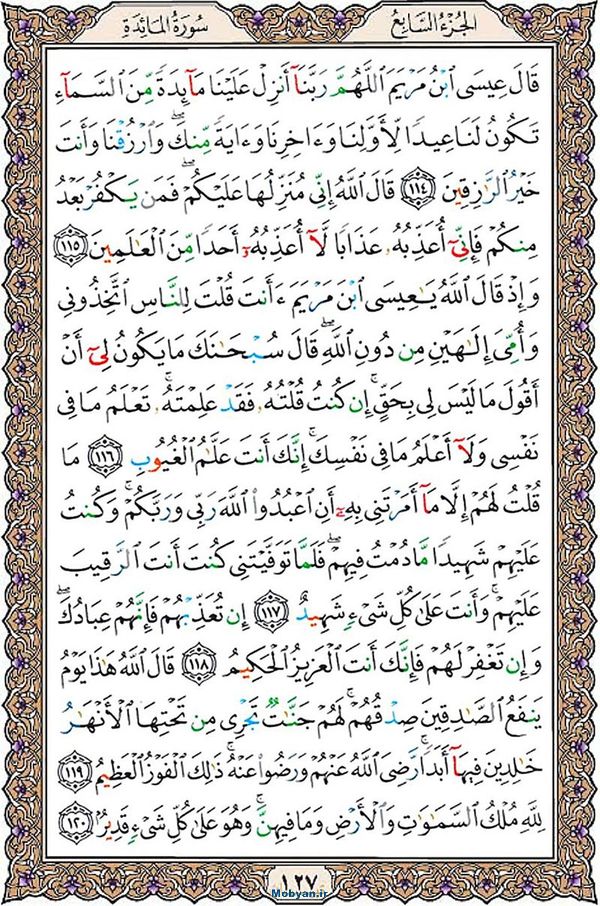 الجُزْءُ السَّابِعُ سُورَةُ المَائِدَة
قَالَ عِيسَى ٱبْنُ مَرْيَمَ ٱللَّهُمَّ رَبَّنَآ أَنزِلْ عَلَيْنَا مَآئِدَةً مِّنَ ٱلسَّمَآءِ
تَكُونُ لَنَا عِيدًا لِّأَوَّلِنَا وَءَاخِرِنَا وَءَايَةً مِّنكَ ۖ وَٱرْزُقْنَا وَأَنتَ
خَيْرُ ٱلرَّٰزِقِينَ ﴿١١٤﴾ قَالَ ٱللَّهُ إِنِّى مُنَزِّلُهَا عَلَيْكُمْ ۖ فَمَن يَكْفُرْ بَعْدُ
مِنكُمْ فَإِنِّىٓ أُعَذِّبُهُۥ عَذَابًا لَّآ أُعَذِّبُهُۥٓ أَحَدًا مِّنَ ٱلْعَٰلَمِينَ ﴿١١٥﴾
وَإِذْ قَالَ ٱللَّهُ يَٰعِيسَى ٱبْنَ مَرْيَمَ ءَأَنتَ قُلْتَ لِلنَّاسِ ٱتَّخِذُونِى
وَأُمِّىَ إِلَٰهَيْنِ مِن دُونِ ٱللَّهِ ۖ قَالَ سُبْحَٰنَكَ مَا يَكُونُ لِىٓ أَنْ
أَقُولَ مَا لَيْسَ لِى بِحَقٍّ ۚ إِن كُنتُ قُلْتُهُۥ فَقَدْ عَلِمْتَهُۥ ۚ تَعْلَمُ مَا فِى
نَفْسِى وَلَآ أَعْلَمُ مَا فِى نَفْسِكَ ۚ إِنَّكَ أَنتَ عَلَّٰمُ ٱلْغُيُوبِ ﴿١١٦﴾ مَا
قُلْتُ لَهُمْ إِلَّا مَآ أَمَرْتَنِى بِهِۦٓ أَنِ ٱعْبُدُوا۟ ٱللَّهَ رَبِّى وَرَبَّكُمْ ۚ وَكُنتُ
عَلَيْهِمْ شَهِيدًا مَّا دُمْتُ فِيهِمْ ۖ فَلَمَّا تَوَفَّيْتَنِى كُنتَ أَنتَ ٱلرَّقِيبَ
عَلَيْهِمْ ۚ وَأَنتَ عَلَىٰ كُلِّ شَىْءٍ شَهِيدٌ ﴿١١٧﴾ إِن تُعَذِّبْهُمْ فَإِنَّهُمْ عِبَادُكَ ۖ
وَإِن تَغْفِرْ لَهُمْ فَإِنَّكَ أَنتَ ٱلْعَزِيزُ ٱلْحَكِيمُ ﴿١١٨﴾ قَالَ ٱللَّهُ هَٰذَا يَوْمُ
يَنفَعُ ٱلصَّٰدِقِينَ صِدْقُهُمْ ۚ لَهُمْ جَنَّٰتٌ تَجْرِى مِن تَحْتِهَا ٱلْأَنْهَٰرُ
خَٰلِدِينَ فِيهَآ أَبَدًا ۚ رَّضِىَ ٱللَّهُ عَنْهُمْ وَرَضُوا۟ عَنْهُ ۚ ذَٰلِكَ ٱلْفَوْزُ ٱلْعَظِيمُ ﴿١١٩﴾
لِلَّهِ مُلْكُ ٱلسَّمَٰوَٰتِ وَٱلْأَرْضِ وَمَا فِيهِنَّ ۚ وَهُوَ عَلَىٰ كُلِّ شَىْءٍ قَدِيرٌۢ ﴿١٢٠﴾
١٢٧
Mobyan.ir